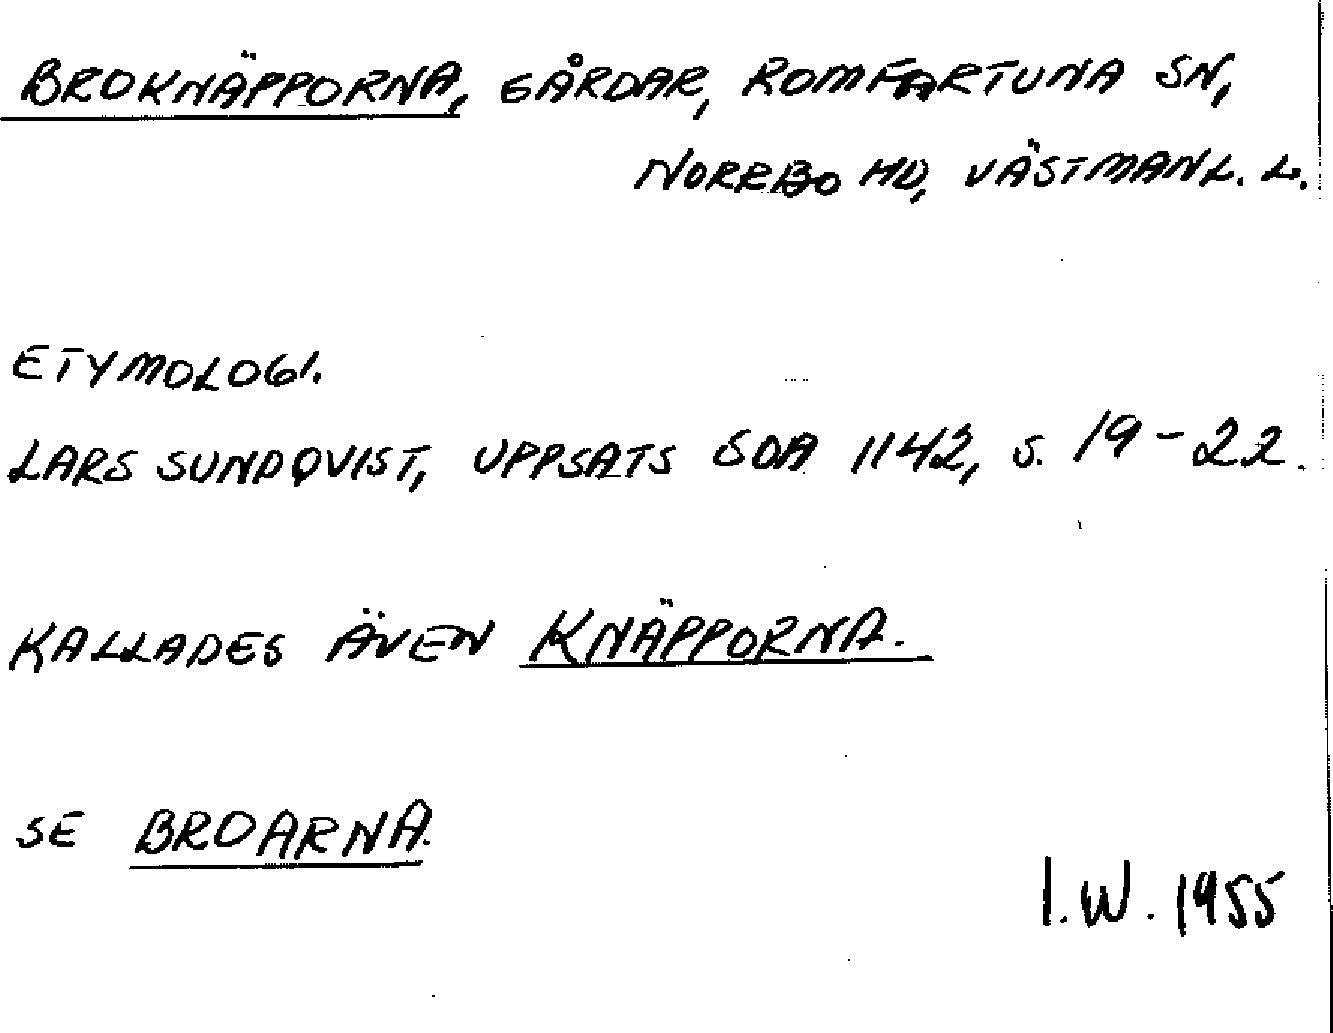 BROKNÄPPORNA, GÅRDAR, ROMFARTUNA SN,
NORRBO HD, VÄSTMANL. L.
ETYMOLOGI.
LARS SUNDQVIST, UPPSATS SOA 1142, S. 19-22.
KALLADES ÄVEN KNÄPPORNA.
SE BROARNA.
I.W. 1955